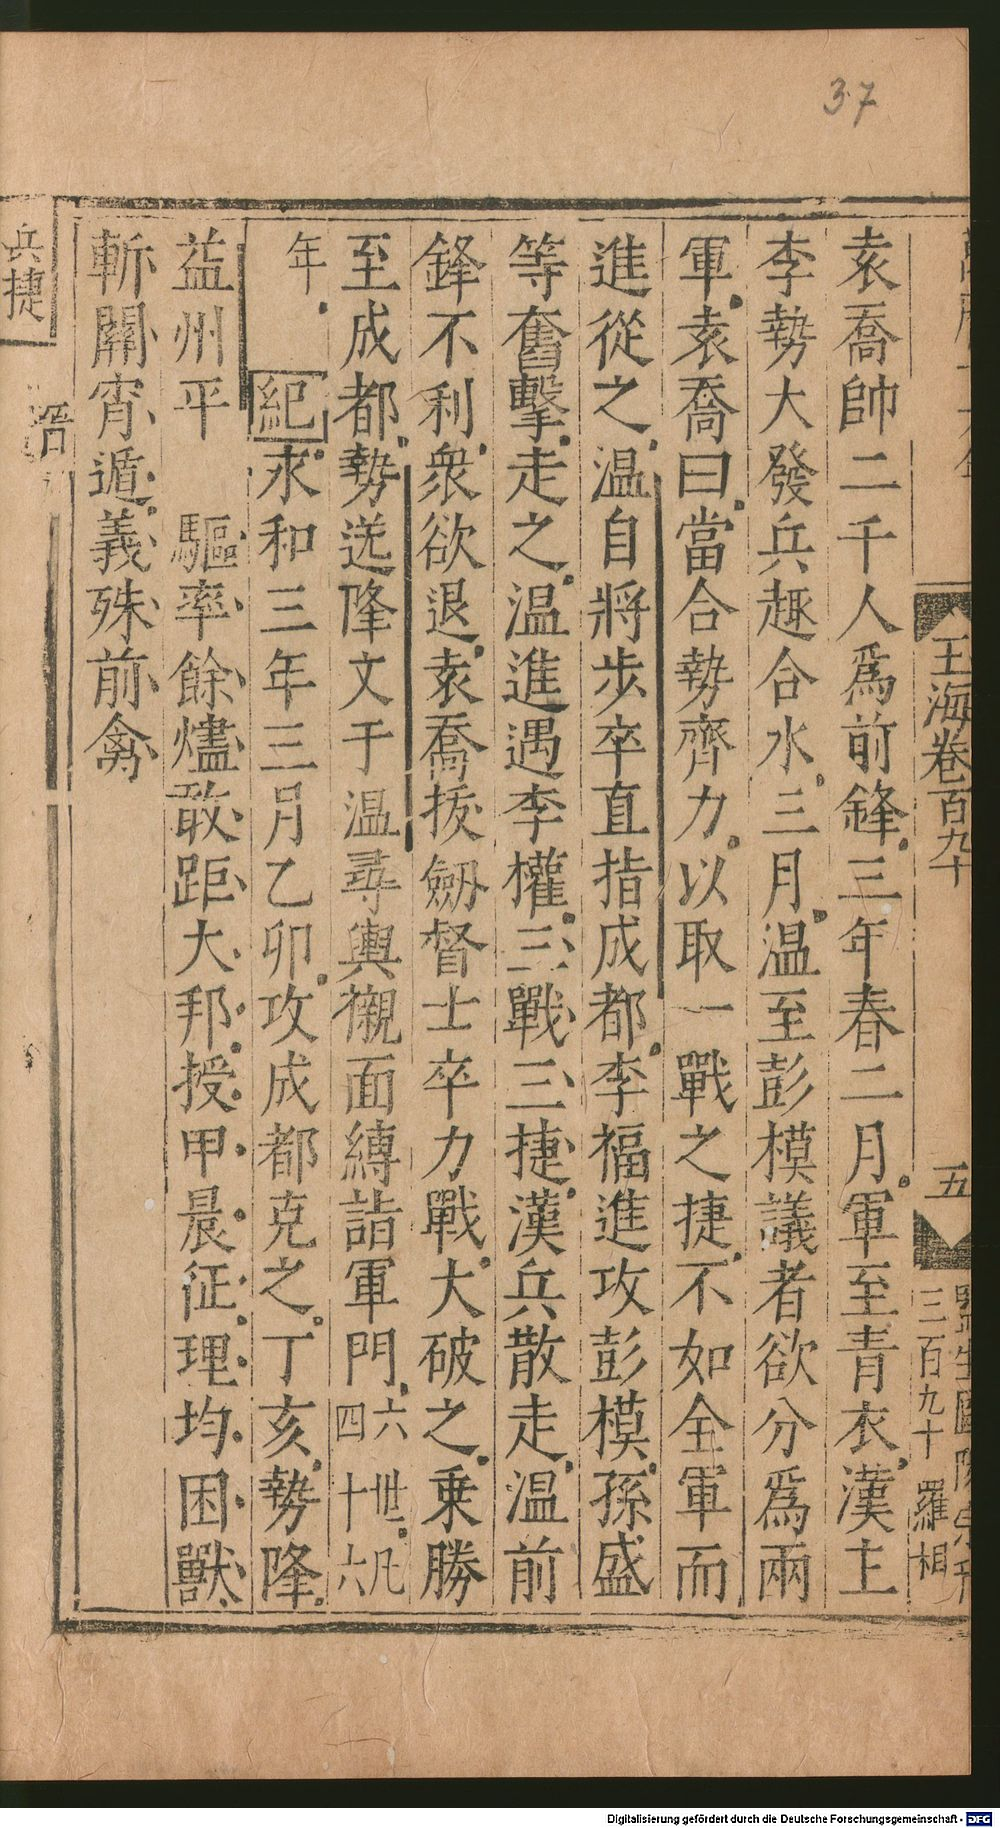 37
玉海卷百九十
五
三百九十
羅相
袁喬帥二千人爲前鋒三年春二月軍至青衣漢主
李勢大發兵趣合水三月温至彭模議者欲分爲兩
軍袁喬曰當合勢齊力以取一戰之捷不如全軍而
進從之温自將步卒直指成都李福進攻彭模孫盛
等奮擊走之温進遇李權三戰三捷漢兵散走温前
鋒不利衆欲退袁喬拔劔督士卒力戰大破之乘勝
至成都勢送降文于温尋輿櫬面縛詣軍門六世凡
四十六
年
紀永和三年三月乙卯攻成都克之丁亥勢降
益州平 驅率餘燼敢距大邦授甲晨征理均困獸
斬關宵遁義殊前禽
兵捷
Digitalisierung gefördert durch die Deutsche Forschungsgemeinschaft - DFG